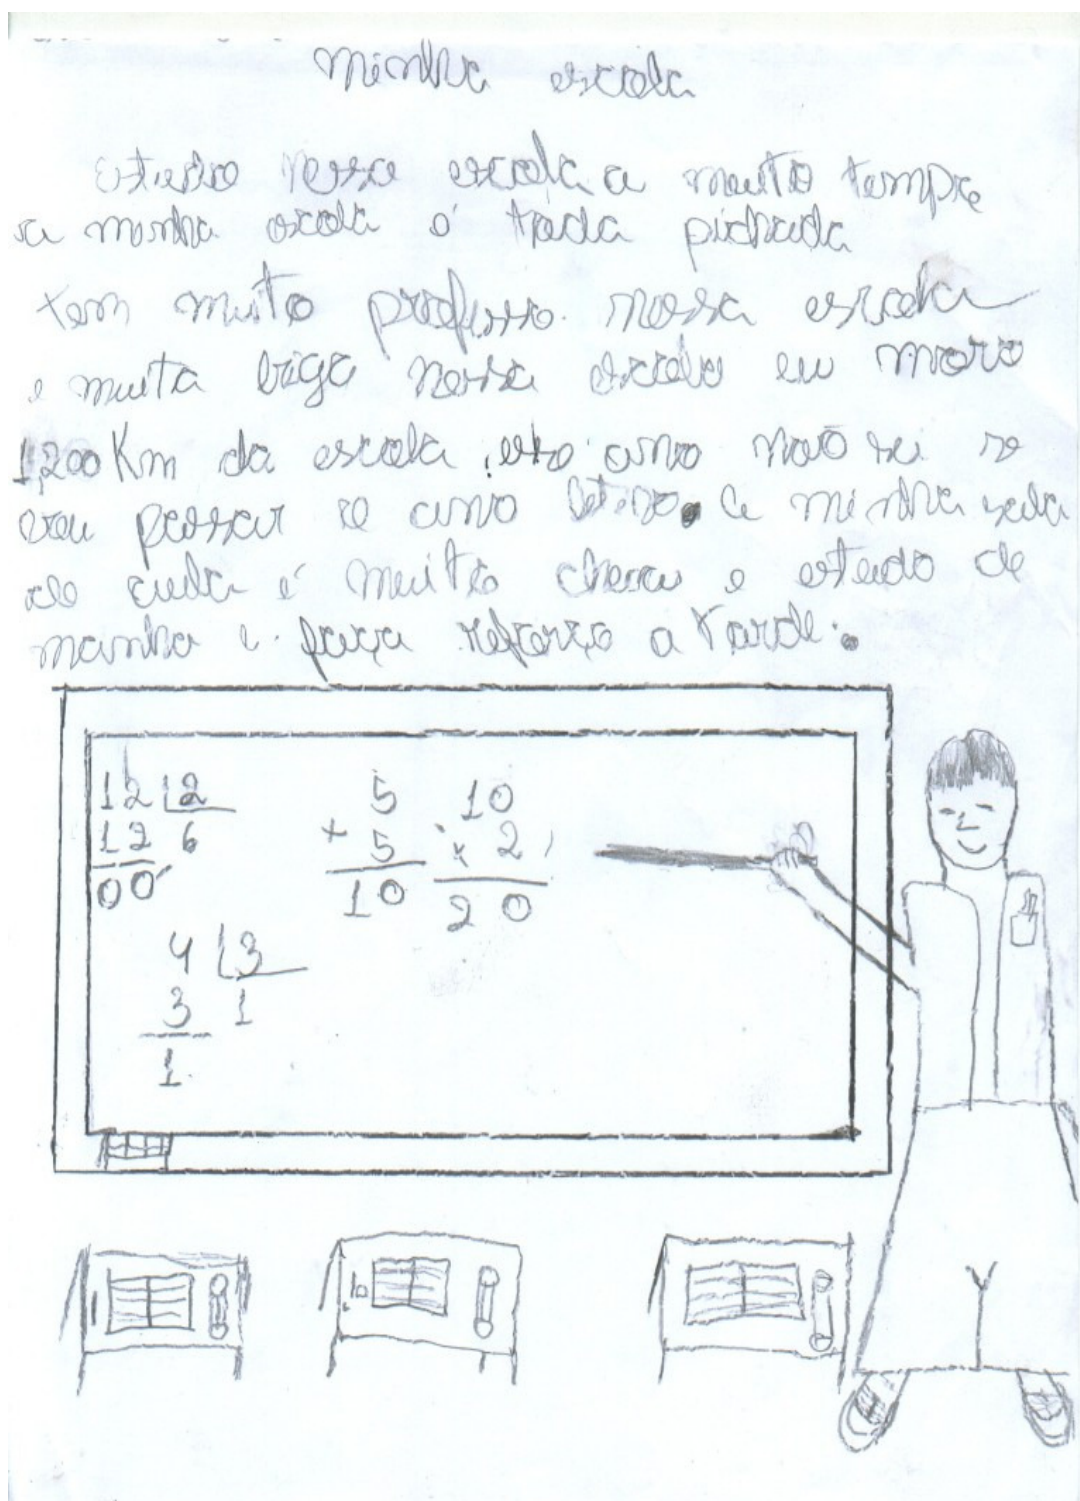 Minha escola
Estudo nessa escola a muito tempo
a minha escola é toda pichada
tem muito professo. nossa escola
e muita briga nessa escola eu moro
1,200 Km da escola, esto ano naõ sei se
vou passar de ano letivo. a minha sala
de aula é muito cheia e estudo de
manha e faça reforço a tarde.
12 2
12 6
00
5
+ 5
10
10
x 2
20
4 3
3 1
1